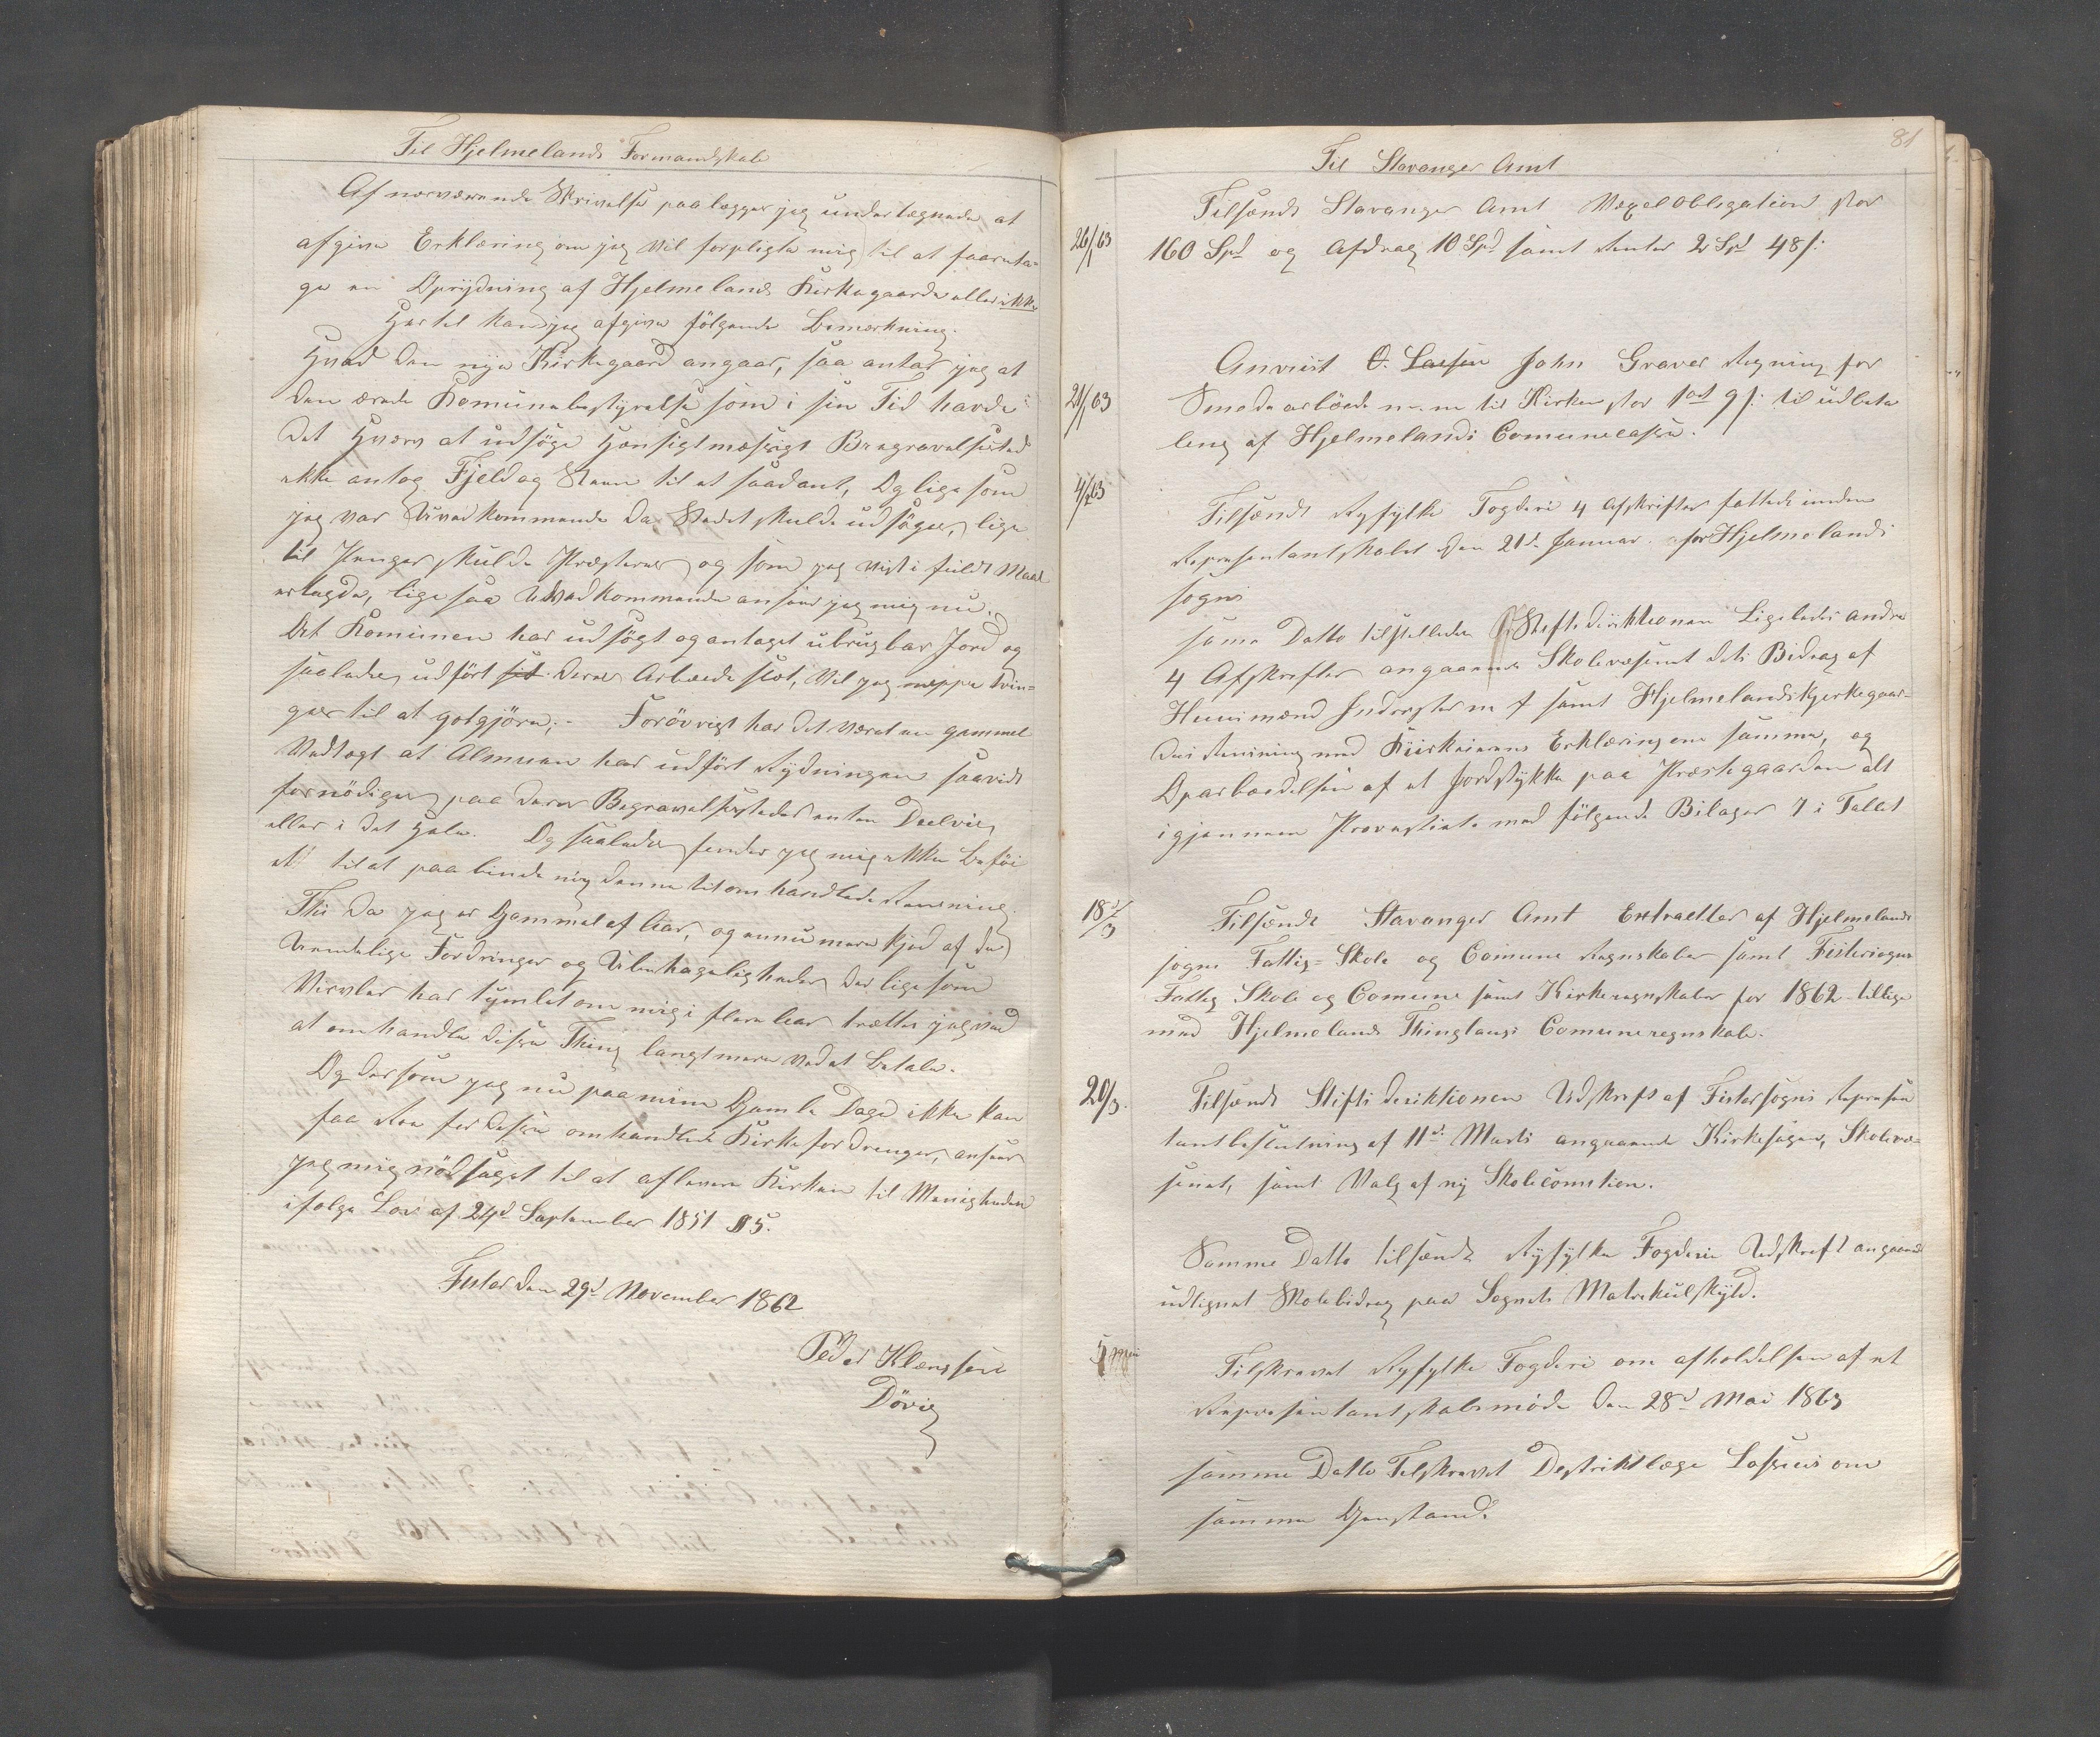 Til Hjelmelands Formandskab
Af nærværende Skrivelse paalægger jeg undertegnede at
afgive Erklæring om jeg vil forpligte mig til at foareta-
ge en Oprydning af Hjelmelands Kirkegaarde eller ikke
Hertil kand jeg afgive følgende Bemærkning.
Hvad den nye Kirkegaard angaar, saa antar jeg at
den ærede Komunebestyrelse som i sin Tid havde
det Hværv at udsöge Hensigtmæssigt Bregravelsessted
ikke antog Fjeld og Steen til et saadant, Og lige som
jeg var Uvedkommende da Stedet skulde udsöges, lige
til Penger skulde Præsteres og som jeg vist i fuldt Maal
erlagde, lige saa Uvedkommende anseer jeg mig nu.
Det Komunen har udsögt og antaget ubrugbar Jord og
saaledes udfört deres Arbeide slet, vil jeg neppe tvin-
ges til at gotgjöre;- Forövrigt har det været en gammel
Vedtægt at Almuen har udfört Rydningen saavidt
fornödiges paa deres Begravelsessteder enten Deelvies
eller i det Hele. Og saaledes finder jeg mig ikke beföi
et til at paa binde mig denne titomhandlede Rensning.
Thi da jeg er Gammel af Aar, og ennu mere kjed af de
Uendelige Fordringer og Ubehageligheder der lige som
Virvler har tymlet om mig i flere Aar trættes jeg ved
at omhandle disse Thing langt mere ved at Betale.
Og der som jeg nu paa mine Gamle Dage ikke kan
faa Roe for disse omhandlede Kirke fordrenger, anseer
jeg mig nödsaget til at aflevere Kirken til Menigheden
ifölge Lov af 24d September 1851 §5.
Fister den 29d November 1862
Peder Klemssen
Dövig
81
Til Stavanger Amt
26/1 63 Tilsendt Stavanger Amt Vexelobligation stor
160 Spd og Afdrag 10 Spd samt Renter 2 Spd 48 s:
21/1 63 Anviist O. Larsen John Graver Regning for
Smedearbeide m. m til Kirken stor 1 ort 9 s: til udbeta
ling af Hjelmelands Comunecasse.
4/2 63 Tilsendt Ryfylke Fogderi 4 Afskrifter fattede inden
Representantskabet den 21d Januar for Hjelmelands
sogn
same Datto tilstilledes Stiftsdirktionen Ligeledes andre
4 Afskrifter angaaende Skolevæsenet dets Bidrag af
Huusmænd Inderster m f samt Hjelmelands Kjerkegaar-
des Rensning med Kirkeieren Erklæring om samme, og
Oparbeidelsen af et Jordstykke paa Præstegaarden alt
igjennem Provstiete med fölgende Bilager 7 i Tallet
18/3 Tilsendt Stavanger Amt Extractter af Hjelmelands
sogns Fattig- Skole og Comune Regnskaber samt Fistersogns
Fattig Skole og Comune samt Kirkeregnskaber for 1862 tillige
med Hjelmelands Thinglaugs Comuneregnskab.
20/3. Tilsendt Stifts deriktionen Udskrift af Fistersogns Represen
tantbeslutning af 11d Marts angaaende Kirkesager, Skolevæ-
senet, samt Valg af ny Skolecomstion.
Samme Datto tilsendt Ryfylke Fogderie Udskrift angaaende
udlignet Skolebidrag paa Sognets Matrikulskyld.
Mai Tilskrevet Ryfylke Fogderi om afholdelsen af et
Representantskabsmöde den 28d Mai 1863
samme Datto Tilskrevet Destriktlæge Lossius om
samme Genstand.